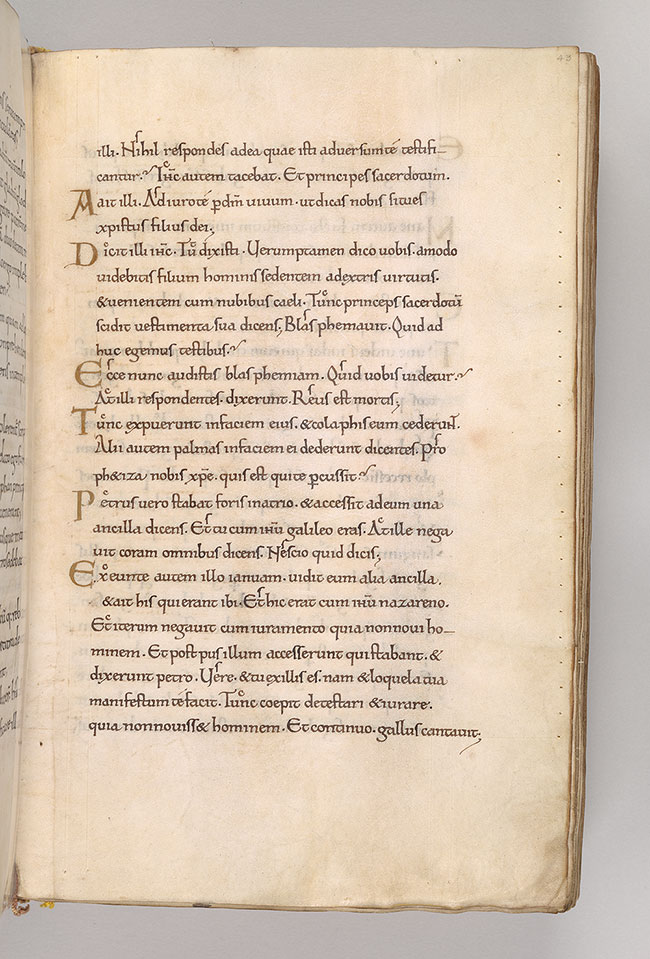 43
illi. Nihil respondes ad ea quae isti adversum té testifi-
cantur. Tunc autem tacebat. Et principes sacerdotum.
Ait illi. Adiuro té p̄ dm̄ uiuum. ut dicas nobis si tu es
xpistus filius dei;
Dicit illi ihc̄. Tu dixisti. Uerumptamen dico uobis. amodo
uidebitis filium hominis sedentem ad extris uirtutis.
& uenientem cum nubibus caeli. Tunc princeps sacerdotū
scidit uestimenta sua dicens; Blasphemauit. Quid ad
huc egemus testibus.
Ecce nunc audistis blasphemiam. Quid uobis uidetur.
At illi respondentes. dixerunt. Reus est mortis;
Tunc expuerunt in faciem eius. & colaphis eum ceder̄.
Alii autem palmas in faciem ei dederunt dicentes. Pro
ph&iza nobis xp̄e. quis est qui te percussit.
Petrus uero stabat foris in atrio. & accessit ad eum una
ancilla dicens. Et tu cum ihū galileo eras. At ille nega
uit coram omnibus dicens. Nescio quid dicis;
Exeunte autem illo ianuam. uidit eum alia ancilla.
& ait his qui erant ibi. Et hic erat cum ihū nazareno.
Et iterum negauit cum iuramento quia non noui ho-
minem. Et post pusillum accesserunt qui stabant. &
dixerunt petro. Uere. & tu ex illis es. nam & loquela tua
manifestum té facit. Tunc coepit detestari & iurare.
quia non nouiss& hominem. Et continuo. gallus cantauit;